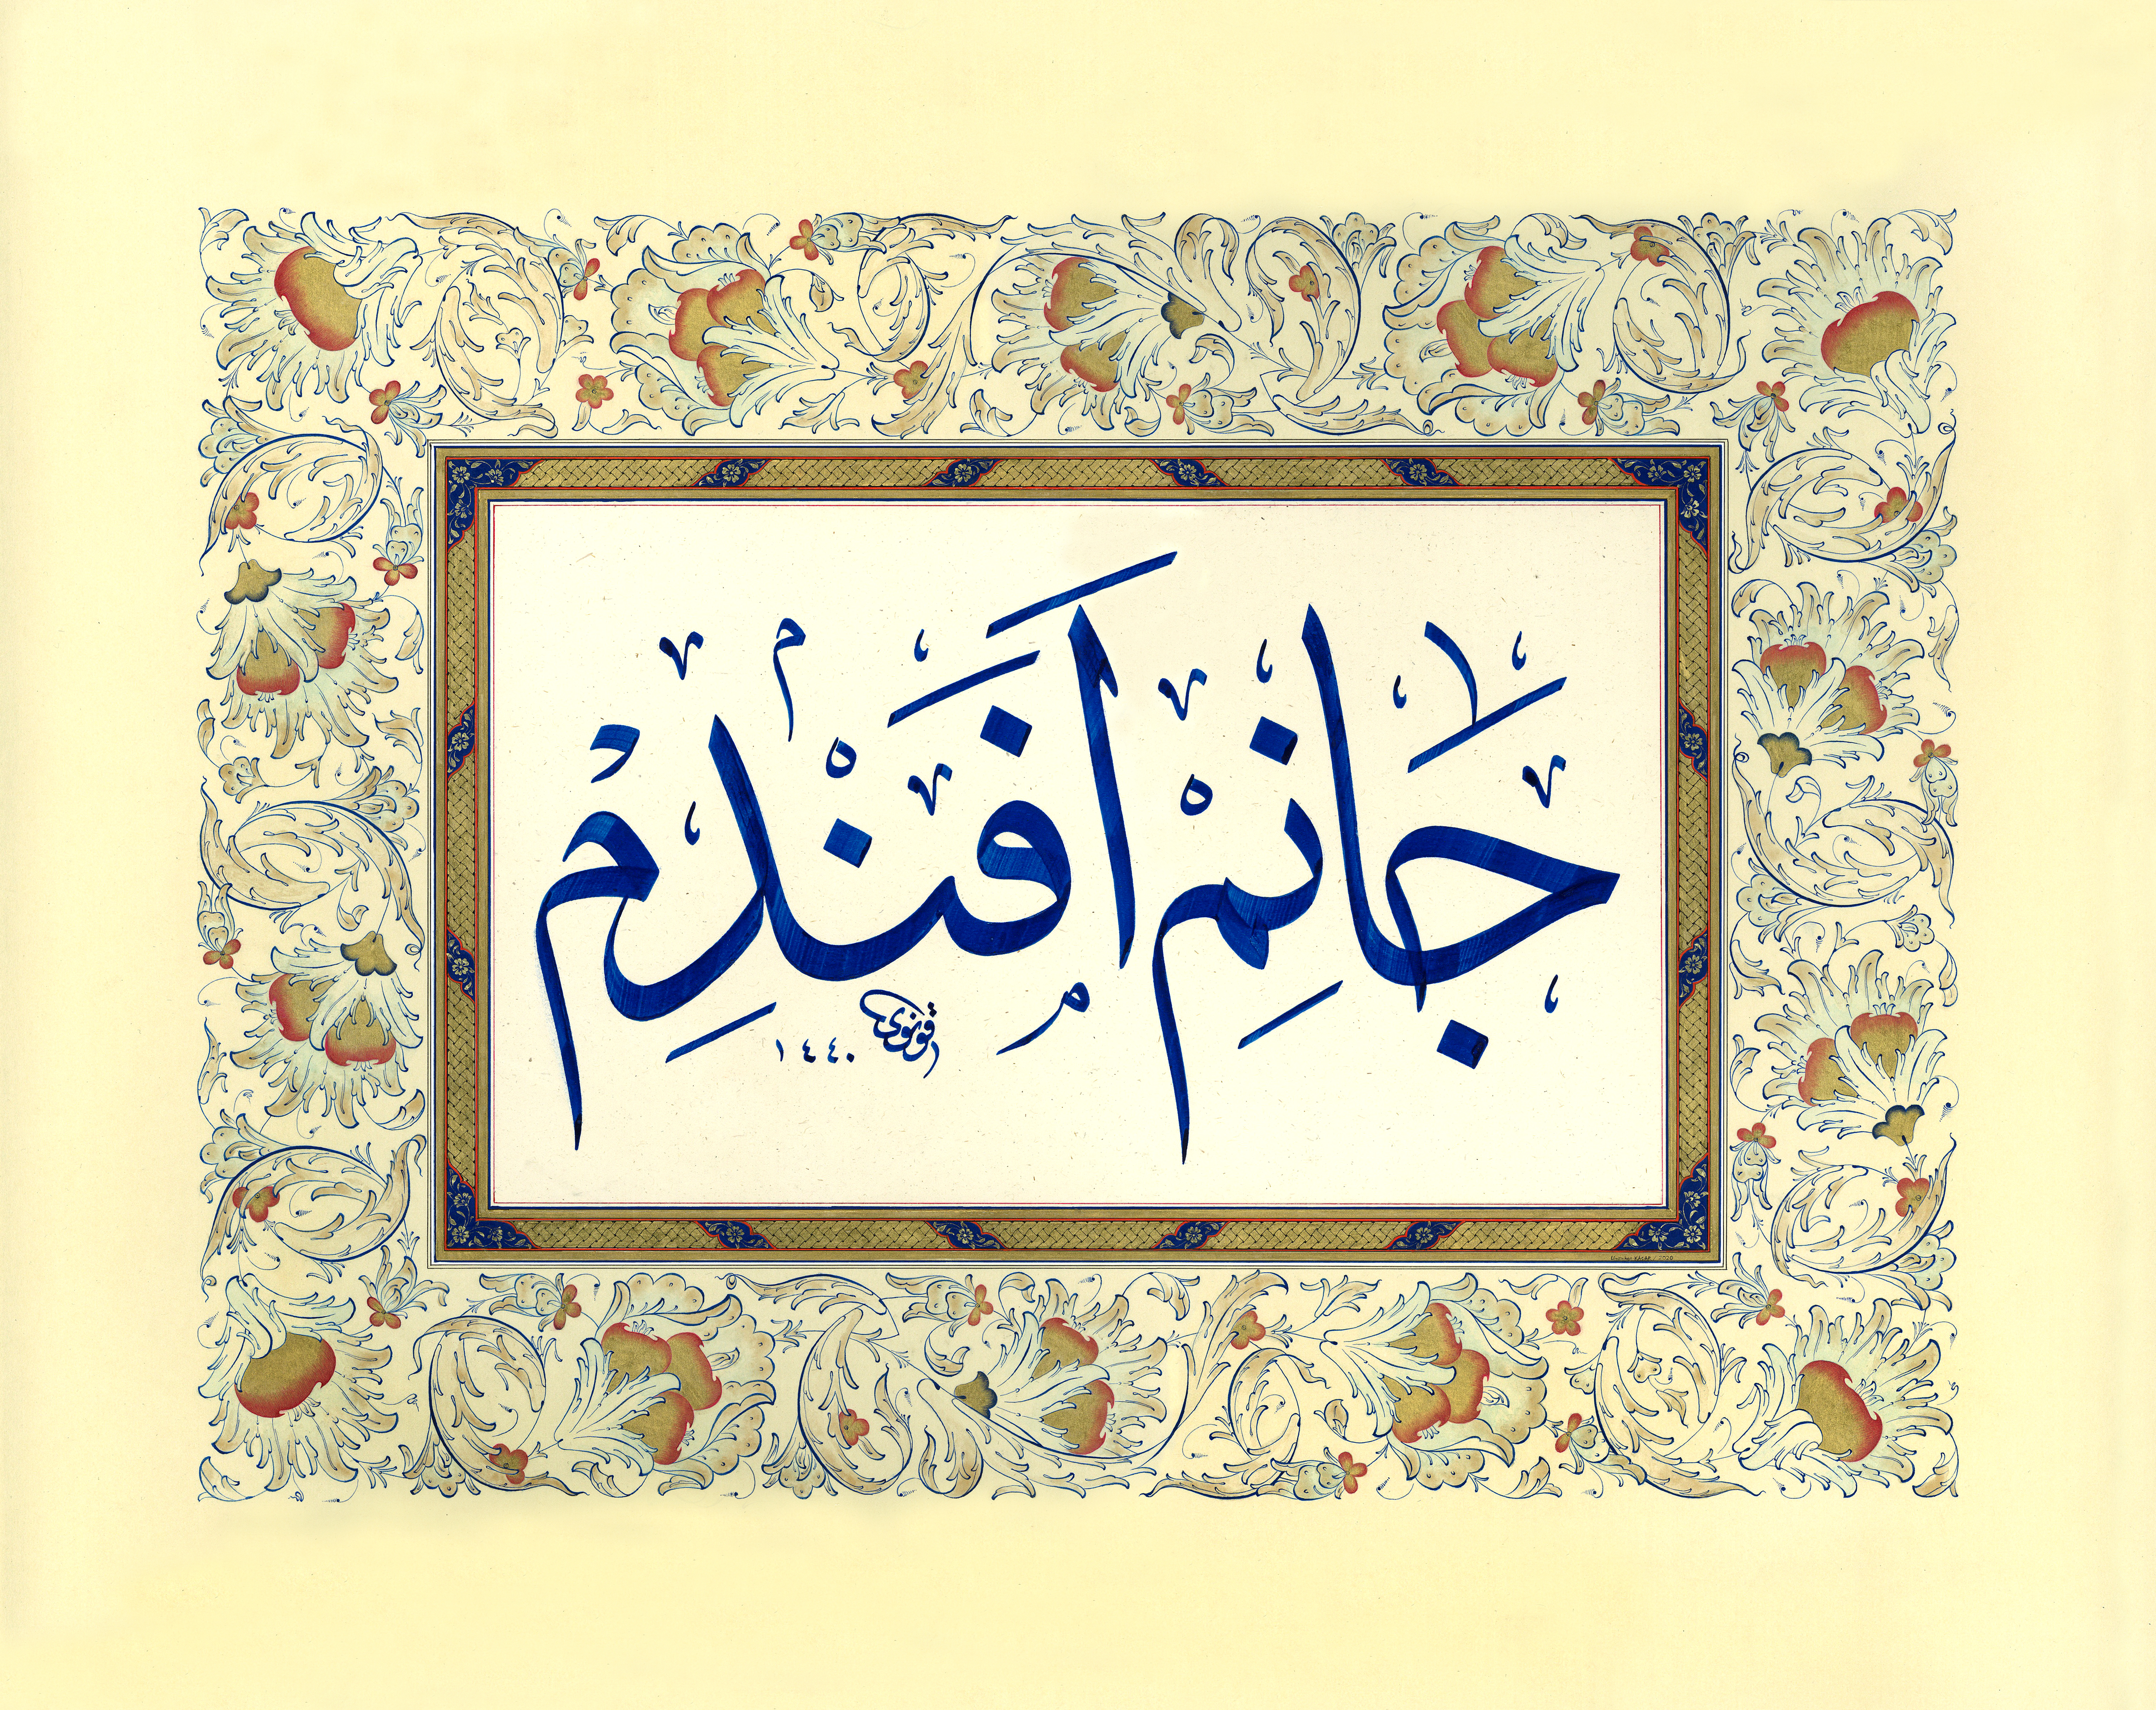 جَانِمْ اَفَنْدِمْ
قونوی ١٤٤٠